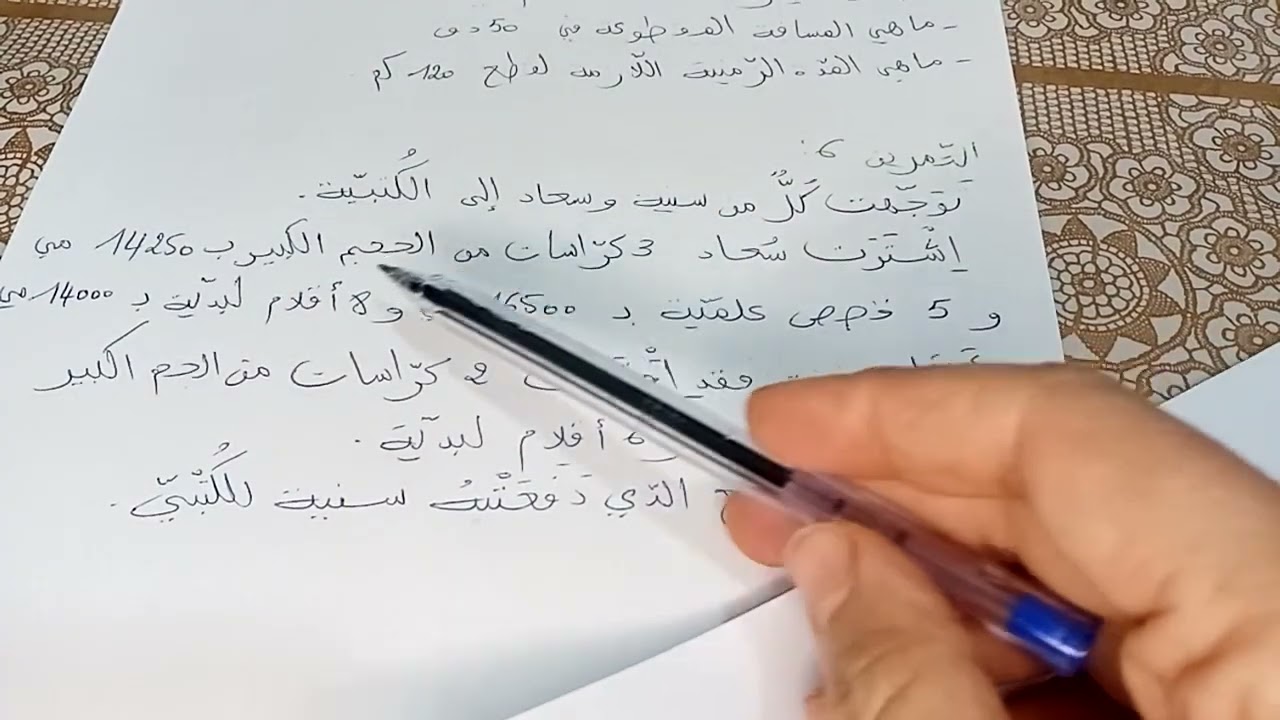 - ماهي المسافة المقطوعة في 50 دق
- ماهي المدّة الزّمنية اللاّزمة لقطع 120 كم
التّمرين 6:
تَوَجّهت كُلٌّ من سنية وسعاد إلى الكُتبيّة.
اِشْتَرَت سُعاد 3 كرّاسات من الحجم الكبير ب 14250 مي
و 5 قصص علميّة بـ 16500 و 8 أقلام لبديّة بـ 14000 مي
فقد 2 كرّاسات من الحجم الكبير
6 أقلام لبديّة.
الذّي دَفَعَتْهُ سنية للكُتُبيّ.